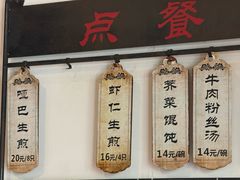 点餐
哑巴生煎
20元/8只
虾仁生煎
16元/4只
荠菜馄饨
14元/碗
牛肉粉丝汤
14元/碗